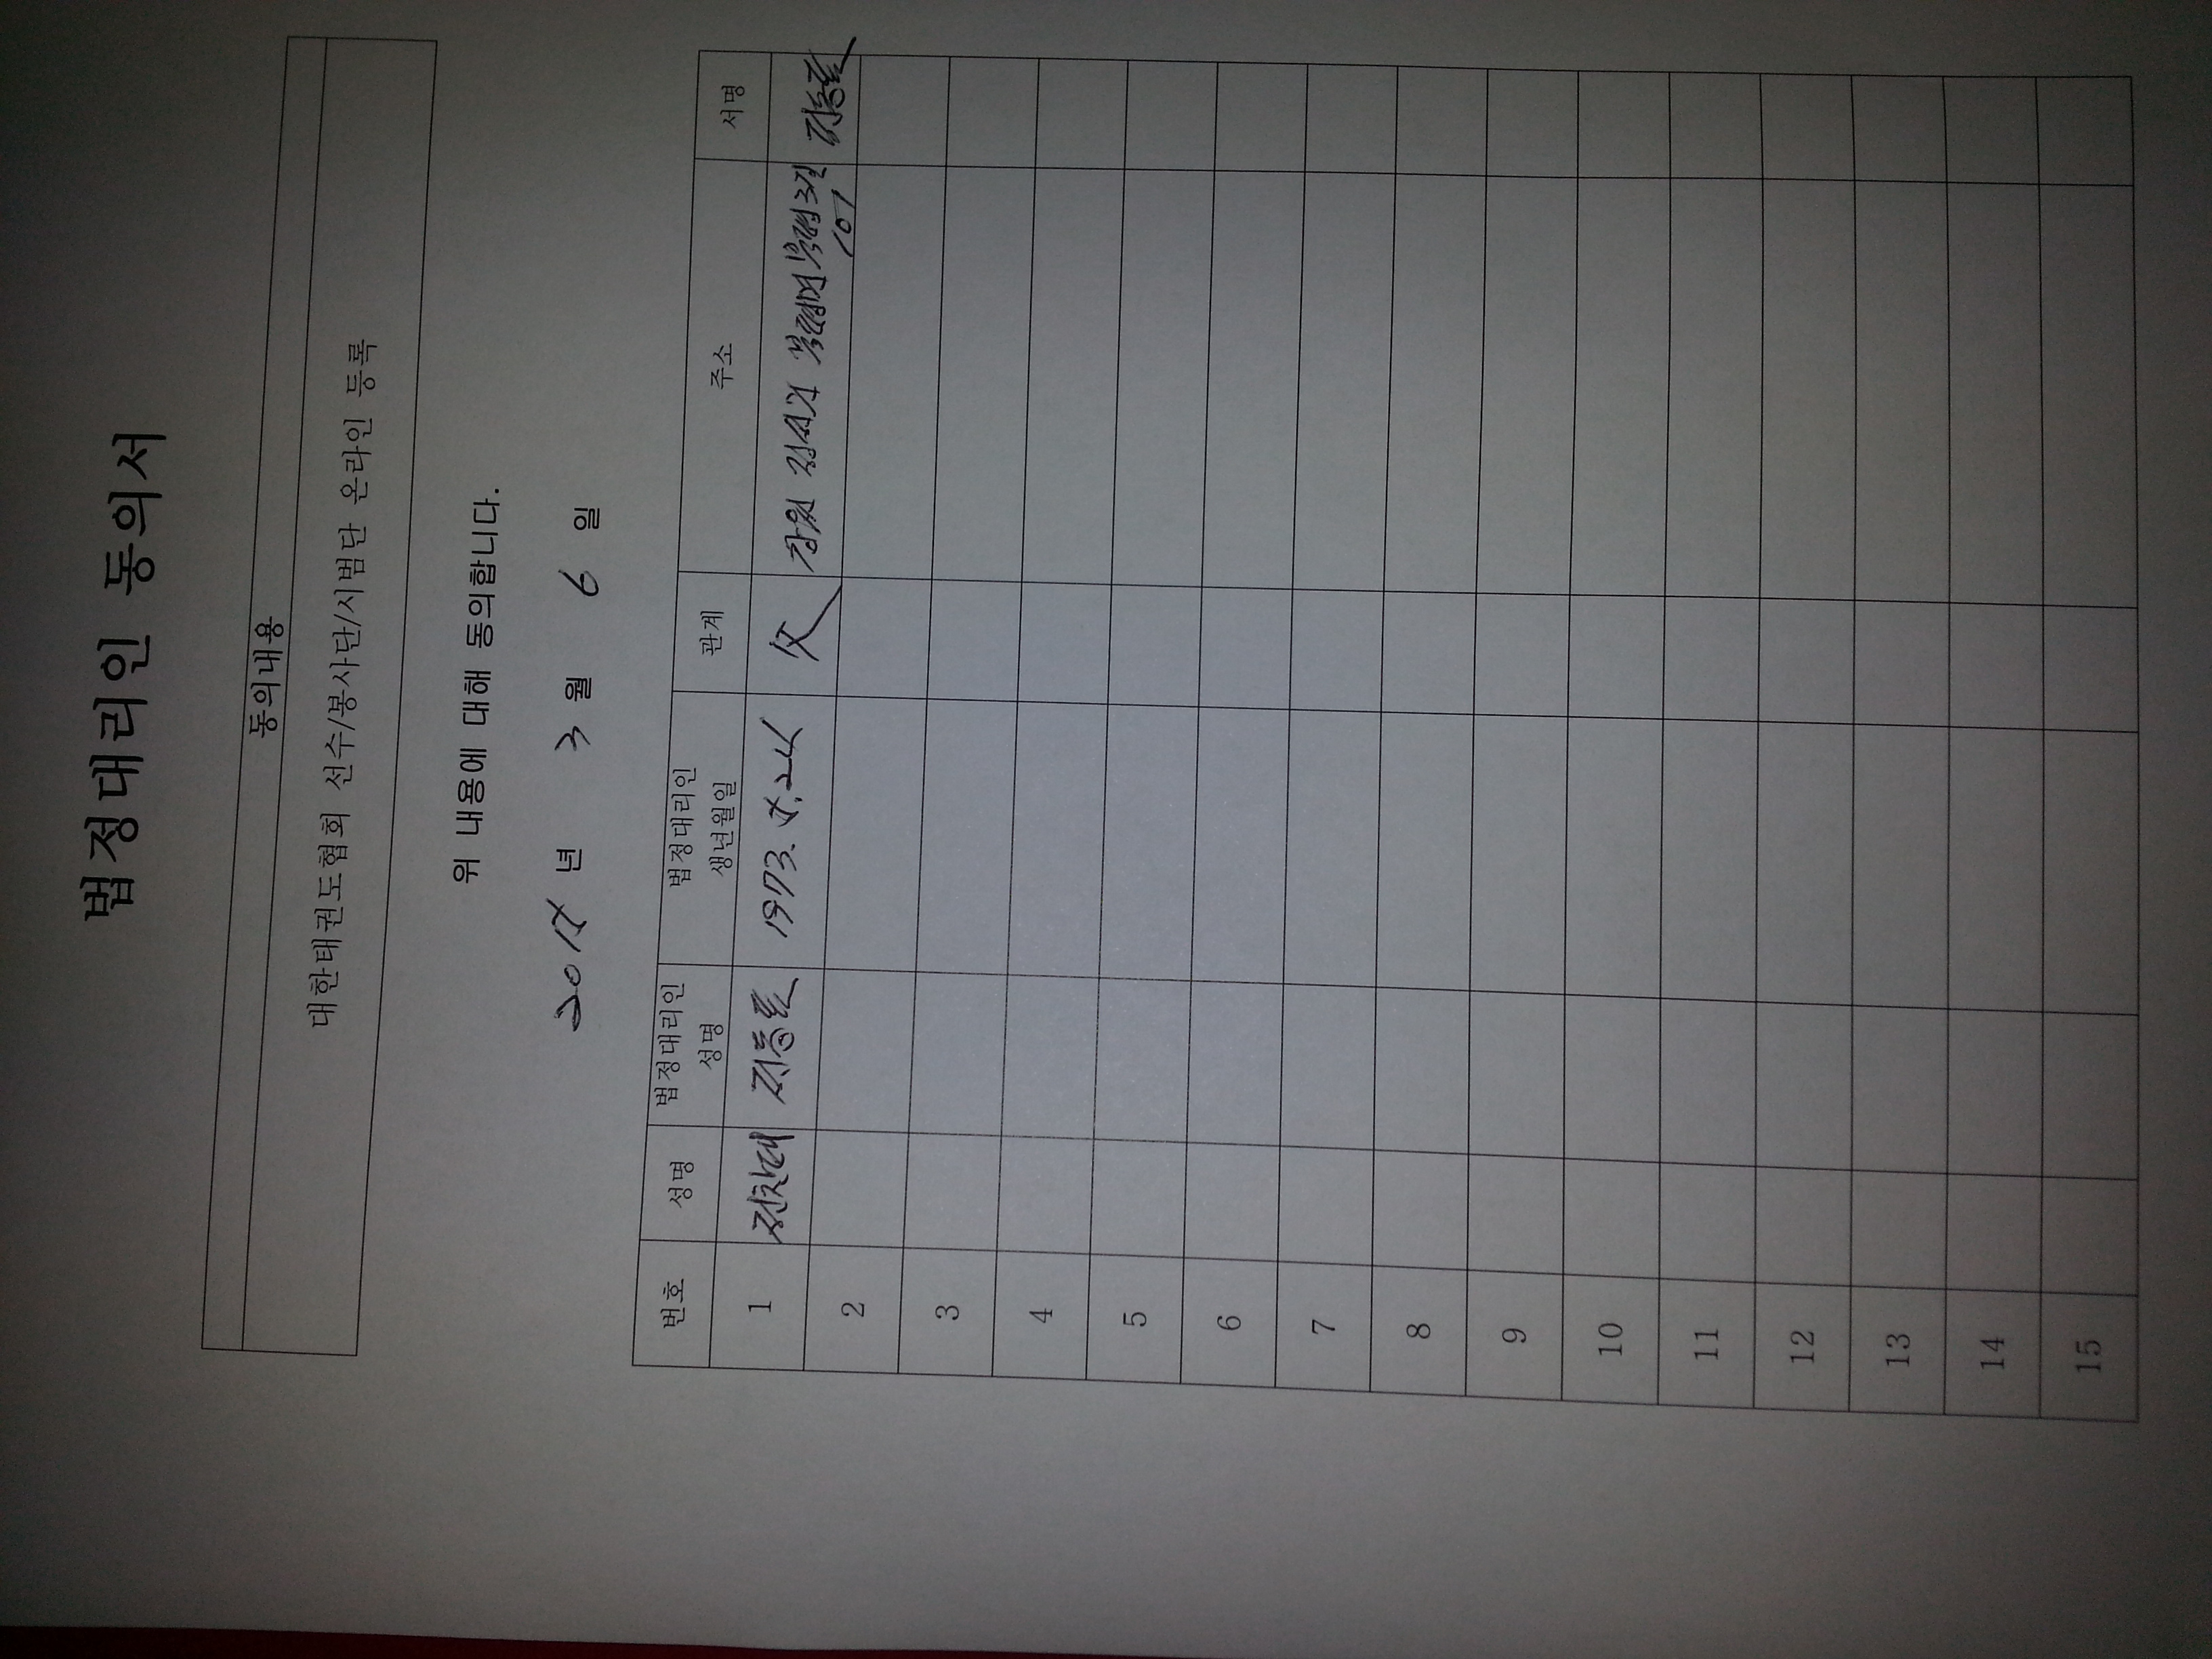 법정대리인 동의서
동의내용
대한태권도협회 선수/봉사단/시범단 온라인 등록
위 내용에 대해 동의합니다.
2014 년 3 월 6 일
번호 성명 법정대리인 성명 법정대리인 생년월일 관계 주소 서명
1 1973. 4. 24 父 강원 정선군 북평면 북평3길 107
2
3
4
5
6
7
8
9
10
11
12
13
14
15